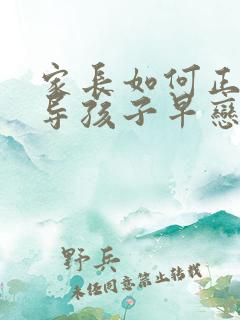 家長如何正
导孩子早戀
野兵
未经同意禁止转载